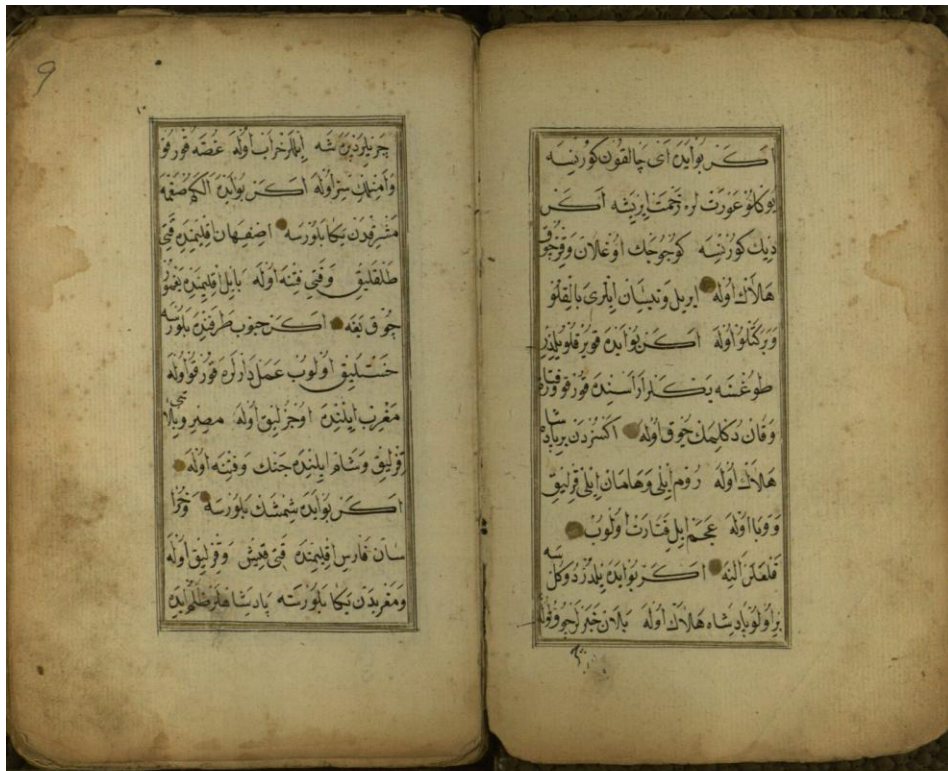 اكر بو ايده آى چالقون كورنسه
يوكلو عورت لره زحمت ايريشه اكر
ديك كورنسه كوجوجك اوغلان وقرجوق
هلاك اوله ايريل ونيسان ايلرى بالقلو
وبركتلو اوله اكر بو ايده قويرقلو يلدز
طوغسه يكلر اراسنده قورقو
وقان دكلمك چوق اوله اكسزدن بر پادشاه
هلاك اوله روم ايلى وهامان ايلى قزليق
ووبا اوله عجم ايل غارت اولوب
قلعلر النه اكر بو ايده يلدز دوكلسه
بر اولو پادشاه هلاك اوله يلان خبرلر چوق اوله
چزيلردن شه ايللر خراب اوله غصه قورقو
وامنلك سز اوله اكر بو ايده الكم صغمه
مشرقدن يكا بلورسه اصفهان اقليمنده قتى
طالقليق وقتى فتنه اوله بابل اقليمنده يغمور
چوق يغه اكر جنوب طرفنده بلورسه
خستليق اولوب عمل دارلره قورقو اوله
مغرب ايلنده اوجزليق اوله مصر
قزليق وشام ايلنده جنك وفتنه اوله
اكر بو ايده شمشك بلورسه وخرا
سان فارس اقليمنده قتى قيش وقزليق اوله
ومغربدن يكا بلورسه پادشاهلر ظلم ايده
9